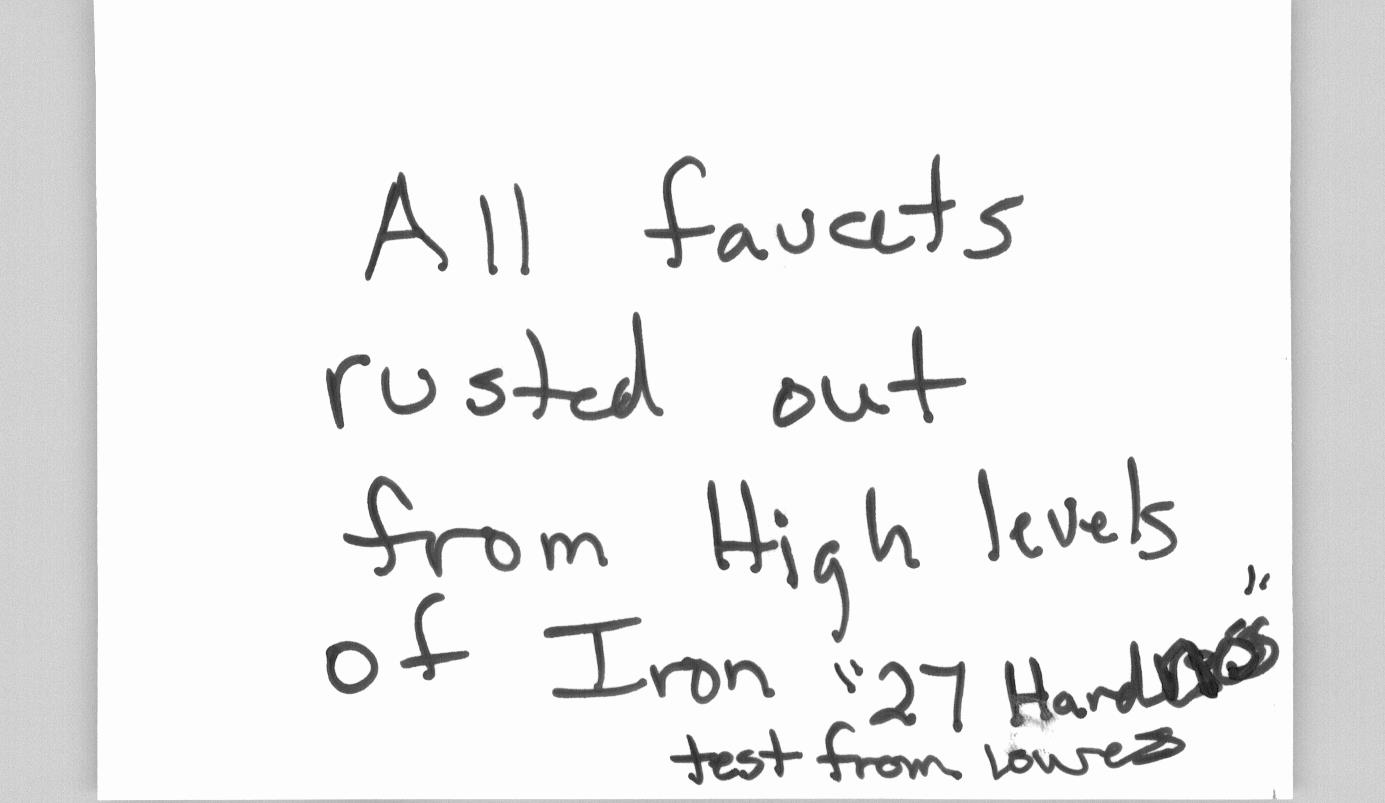 All faucets
rusted out
from High levels
of Iron "27 Hardness"
test from Lowes